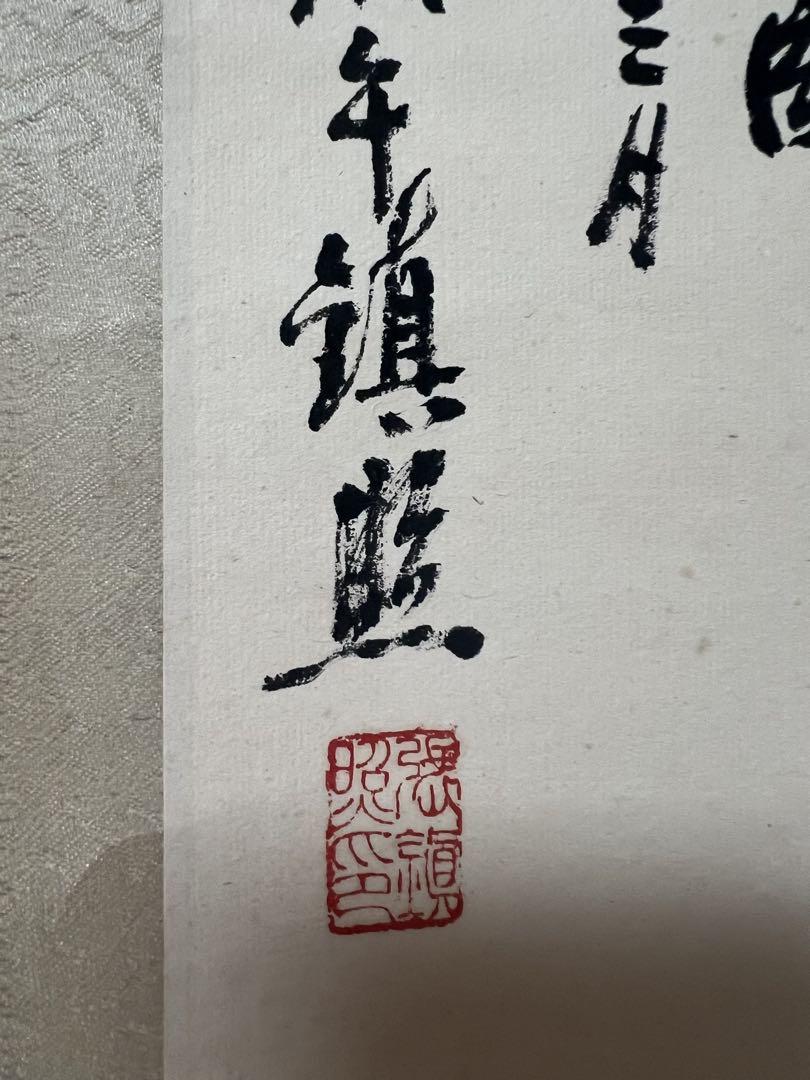 三月
午鎮照
張鎮
照印